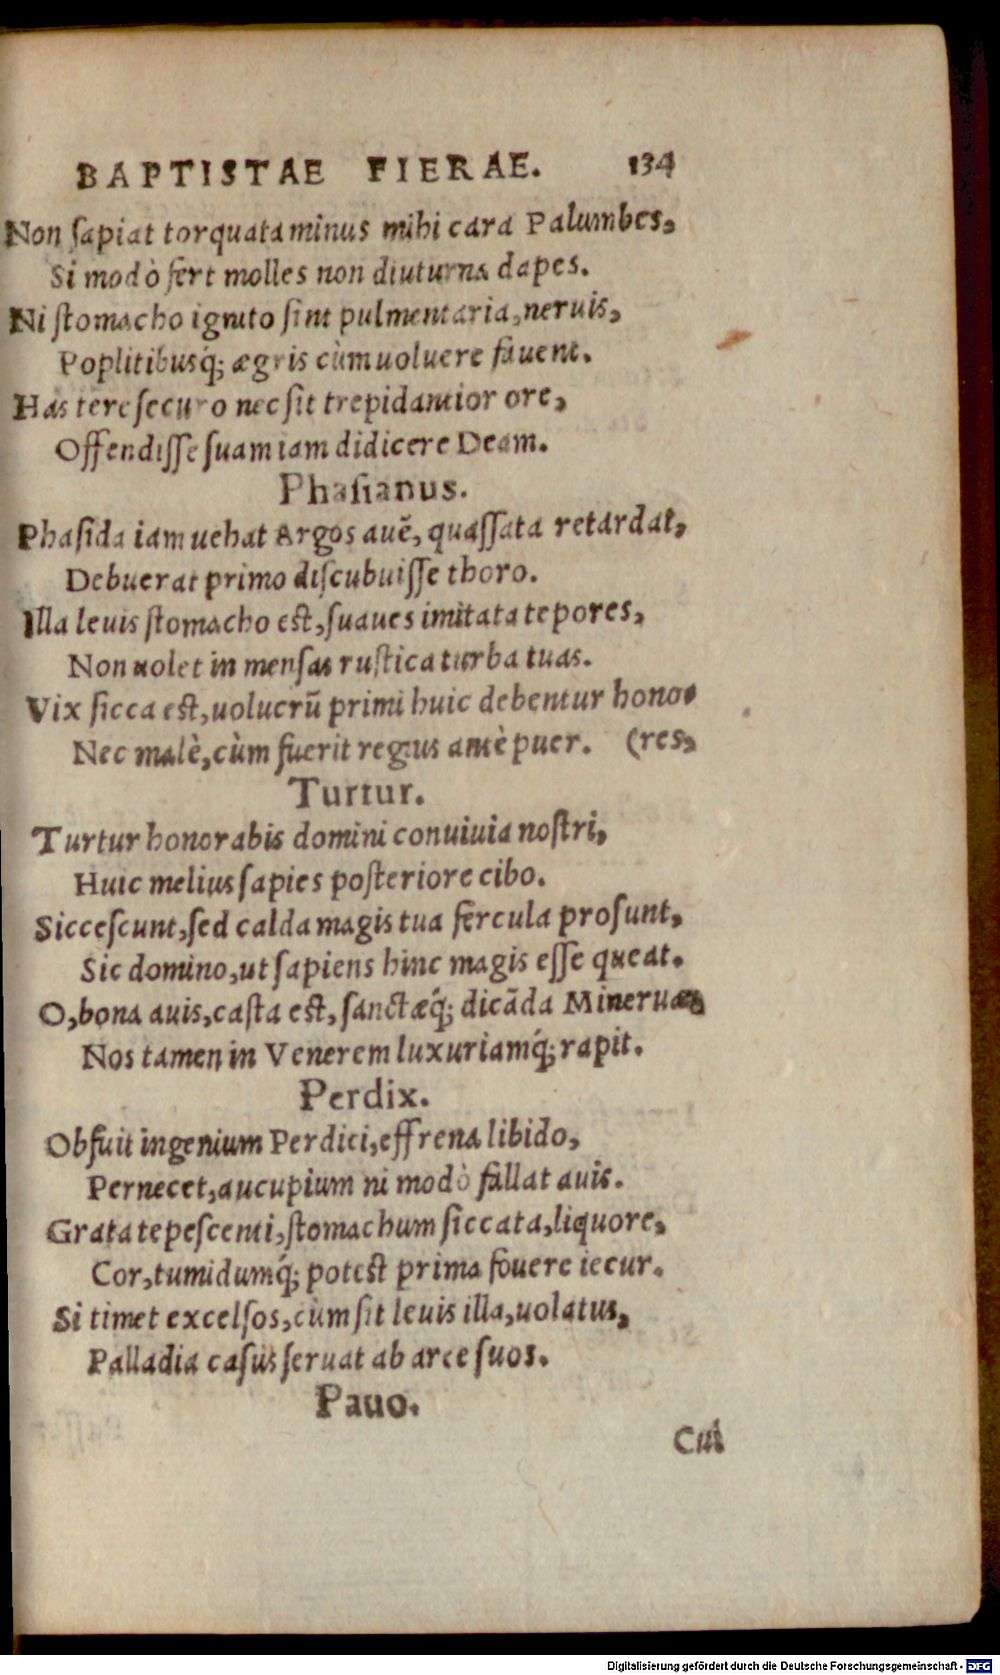 BAPTISTAE FIERAE. 134
Non ſapiat torquata minus mihi cara Palumbes,
Si modò fert molles non diuturna dapes.
Ni ſtomacho ignito ſint pulmentaria, neruis,
Poplitibusq́; ægris cùm uoluere fauent.
Has tere ſecuro nec ſit trepidantior ore,
Offendiſſe ſuam iam didicere Deam.
Phaſianus.
Phaſida iam uehat Argos auē, quaſſata retardat,
Debuerat primo diſcubuiſſe thoro.
Illa leuis ſtomacho eſt, ſuaues imitata tepores,
Non uolet in menſas ruſtica turba tuas.
Vix ſicca eſt, uolucrū primi huic debentur hono-
Nec malè, cùm fuerit regius antè puer. (res,
Turtur.
Turtur honorabis domini conuiuia noſtri,
Huic melius ſapies poſteriore cibo.
Siccеſcunt, ſed calda magis tua fercula proſunt,
Sic domino, ut ſapiens hinc magis eſſe queat.
O, bona auis, caſta eſt, ſanctæq́; dicāda Mineruæ,
Nos tamen in Venerem luxuriamq́; rapit.
Perdix.
Obfuit ingenium Perdici, effrena libido,
Pernecet, aucupium ni modò fallat auis.
Grata tepeſcenti, ſtomachum ſiccata, liquore,
Cor, tumidumq́; poteſt prima fouere iecur.
Si timet excelſos, cùm ſit leuis illa, uolatus,
Palladia caſus ſeruat ab arce ſuos.
Pauo.
Cui
Digitalisierung gefördert durch die Deutsche Forschungsgemeinschaft - DFG